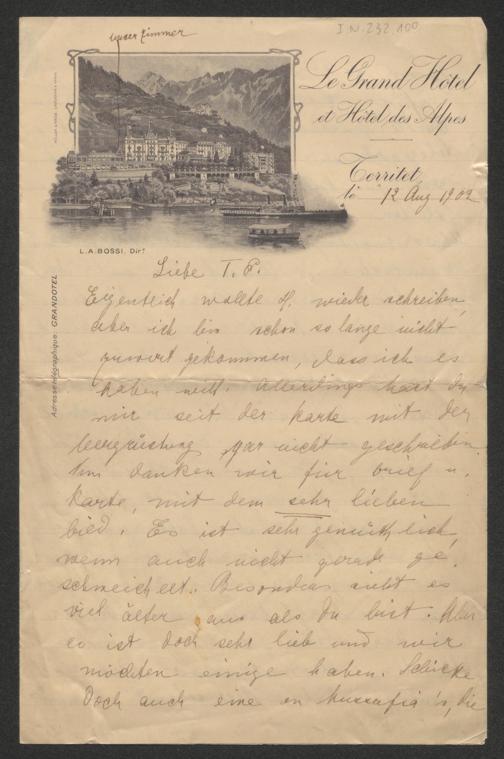 unser Zimmer
I.N. 232.100
Le Grand Hôtel
et Hôtel des Alpes
Territet
le 12 Aug 1902
L.A. BOSSI, Dirr
Adresse télégraphique: GRANDOTEL
Liebe T. E.
Eigentlich wollte H. wieder schreiben,
aber ich bin schon so lange nicht
zuwort gekommen, dass ich es
haben will. Allerdings hast du
mir seit der Karte mit der
gar nicht geschrieben.
danken wir für brief u.
Karte, mit dem sehr lieben
bied. Es ist sehr gemüthlich,
wenn auch nicht gerade ge
schmeichelt. Besonders sieht es
viel älter aus als du bist. Aber
es ist doch sehr lieb und wir
möchten einige haben. Schicke
doch auch eine an die